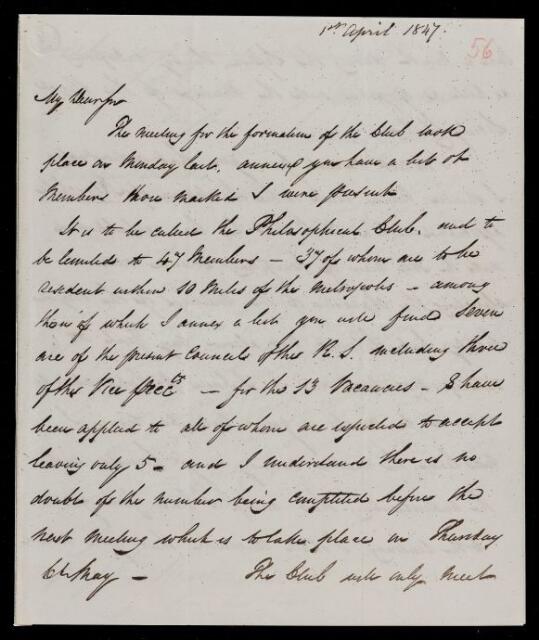 1st April 1847.
56
My Dear Sir
The meeting for the formation of the Club took
place on Monday last. annexed you have a list of
Members those marked I were present
It is to be called the Philosophical Club. and to
be limited to 47 Members – 37 of whom are to be
resident within 10 Miles of the Metropolis – among
those of which I annex a list you will find Seven
are of the present Council of the R. S. including three
of the Vice Prests – for the 13 Vacancies – 8 have
been applied to all of whom are expected to accept
leaving only 5 – and I understand there is no
doubt of the number being completed before the
next meeting which is to take place on Thursday
6th May – The Club will only meet